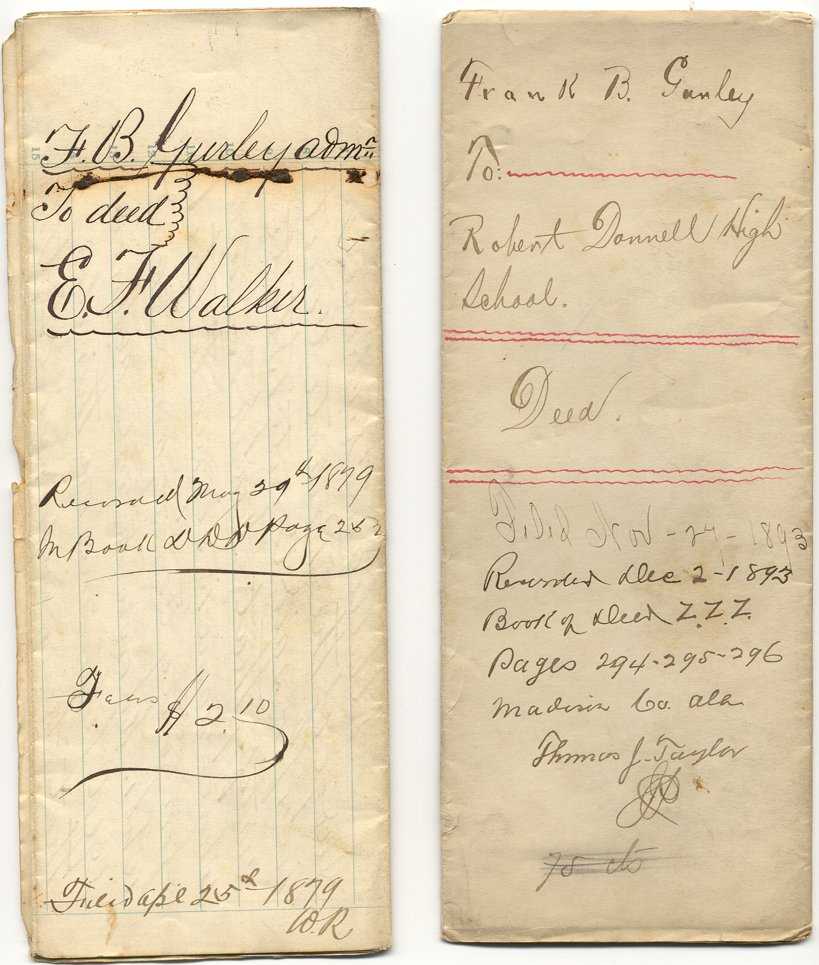 F. B. Gurley admr.
To deed
E. F. Walker.
Recorded May 29th 1879
In Book D D D Page 252
Fees $2.10
Filed Apl 25th 1879
W. R
Frank B. Gurley
To:
Robert Donnell High
School.
Deed.
Filed Nov - 27 - 1893
Recorded Dec 2 - 1893
Book of Deed Z.Z.Z.
Pages 294-295-296
Madison Co. Ala
Thomas J. Taylor
75 cts